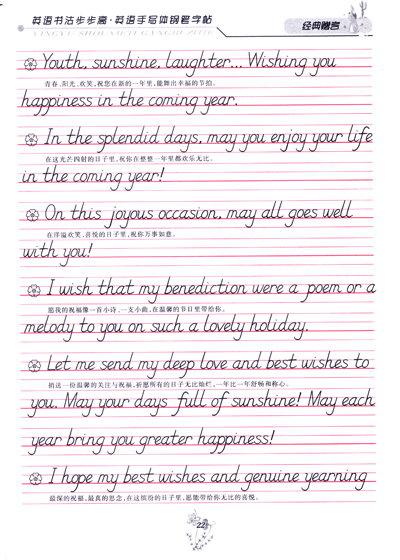 英语书法步步高·英语手写体钢笔字帖
经典赠言
YINGYU SHUFA BUBUGAO·YINGYU SHOUXIETI GANGBI ZITIE
Youth, sunshine, laughter... Wishing you
青春、阳光、欢笑,祝您在新的一年里,能舞出幸福的节拍。
happiness in the coming year.
In the splendid days, may you enjoy your life
在这光芒四射的日子里,祝你在整整一年里都欢乐无比。
in the coming year!
On this joyous occasion, may all goes well
在洋溢欢笑、喜悦的日子里,祝你万事如意。
with you!
I wish that my benediction were a poem or a
愿我的祝福像一首小诗、一支小曲,在温馨的节日里带给你。
melody to you on such a lovely holiday.
Let me send my deep love and best wishes to
捎送一份温馨的关注与祝福,祈愿所有的日子无比灿烂,一年比一年舒畅和称心。
you. May your days full of sunshine! May each
year bring you greater happiness!
I hope my best wishes and genuine yearning
最深的祝福,最真的思念,在这缤纷的日子里,愿能带给你无比的喜悦。
22